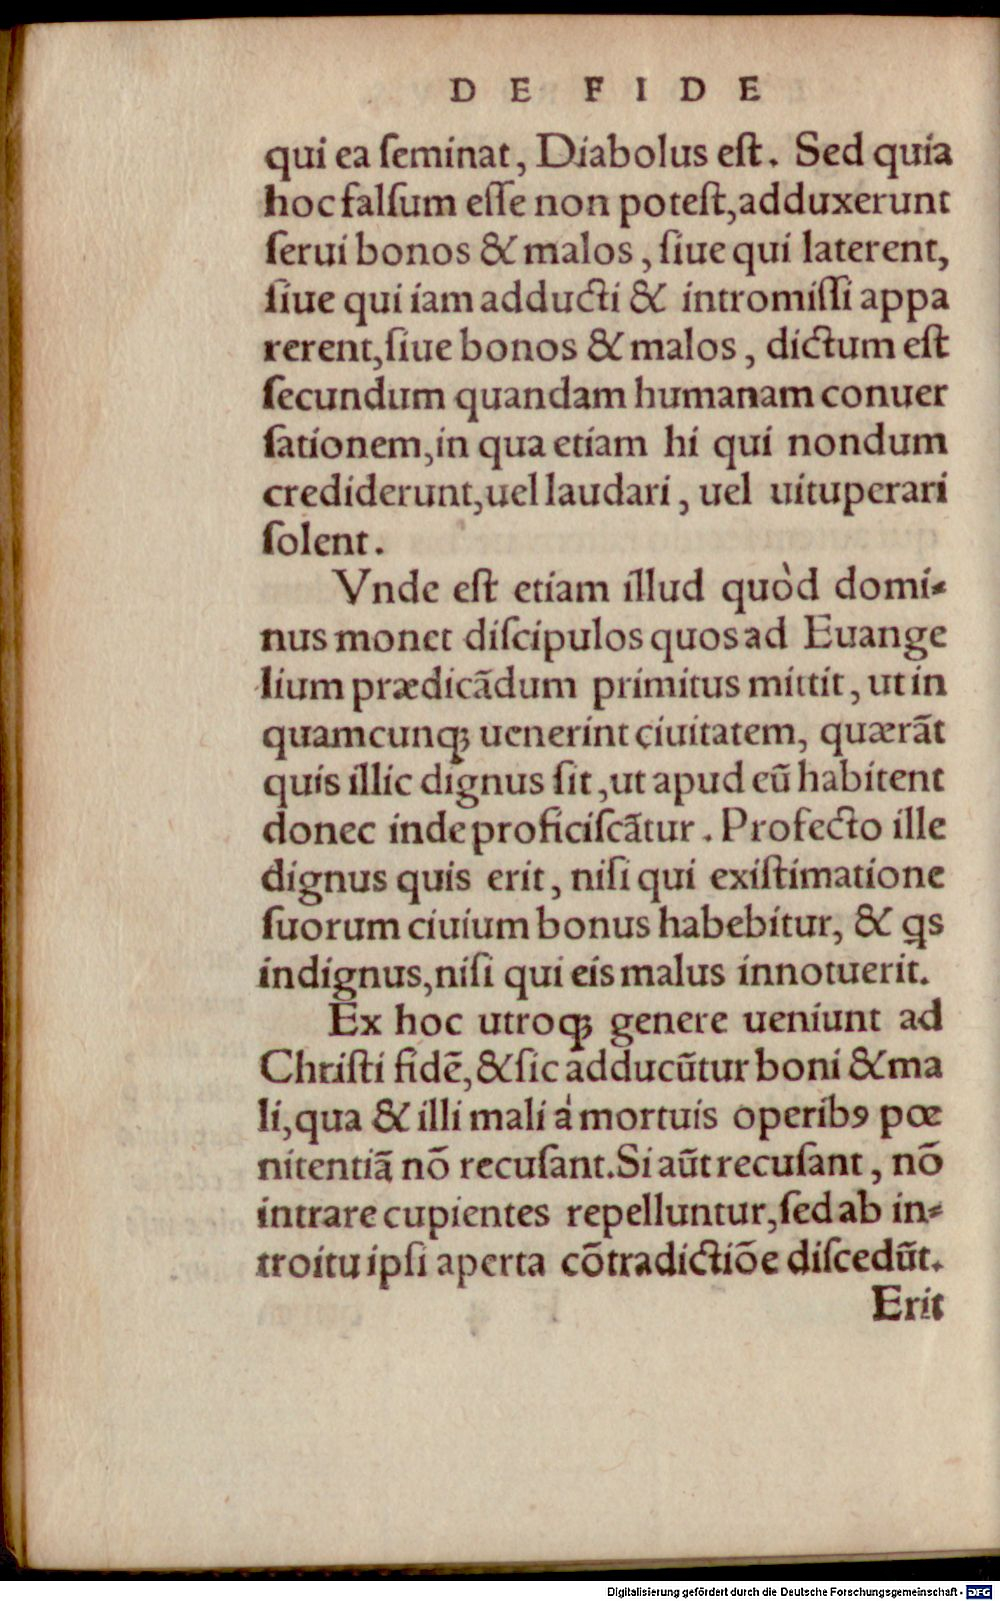 DE FIDE
qui ea ſeminat, Diabolus eſt. Sed quia
hoc falſum eſſe non poteſt, adduxerunt
ſerui bonos & malos, ſiue qui laterent,
ſiue qui iam adducti & intromiſſi appa
rerent, ſiue bonos & malos, dictum eſt
ſecundum quandam humanam conuer
ſationem, in qua etiam hi qui nondum
crediderunt, uel laudari, uel uituperari
ſolent.
Vnde eſt etiam illud quòd domi⸗
nus monet diſcipulos quos ad Euange
lium prædicãdum primitus mittit, ut in
quamcunq; uenerint ciuitatem, quærãt
quis illic dignus ſit, ut apud eũ habitent
donec inde proficiſcãtur. Profecto ille
dignus quis erit, niſi qui exiſtimatione
ſuorum ciuium bonus habebitur, & qs
indignus, niſi qui eis malus innotuerit.
Ex hoc utroq; genere ueniunt ad
Chriſti fidẽ, & ſic adducũtur boni & ma
li, qua & illi mali à mortuis operibꝰ pœ
nitentiã nõ recuſant. Si aũt recuſant, nõ
intrare cupientes repelluntur, ſed ab in⸗
troitu ipſi aperta cõtradictiõe diſcedũt.
Erit
Digitalisierung gefördert durch die Deutsche Forschungsgemeinschaft - DFG